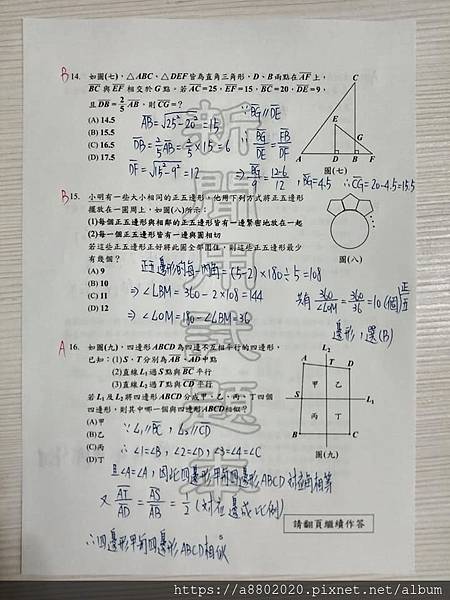 B 14. 如圖(七),△ABC、△DEF皆為直角三角形,D、B兩點在AF上,
BC與EF相交於G點。若AC=25,EF=15,BC=20,DE=9,
且DB=2/5 AB,則CG=?
(A) 14.5
(B) 15.5
(C) 16.5
(D) 17.5
AB=√25²-20²=15
DB=2/5 AB=2/5×15=6
DF=√15²-9²=12
∵BG∥DE
∴BG/DE=FB/DF
⇒BG/9=12-6/12
∴BG=4.5 ∴CG=20-4.5=15.5
C
E
G
A D B F
圖(七)
B 15. 小明有一些大小相同的正五邊形,他用下列方式將正五邊形
擺放在一圓周上,如圖(八)所示:
(1)每個正五邊形與相鄰的正五邊形皆有一邊緊密地放在一起
(2)每個正五邊形皆有一邊與圓相切
若這些正五邊形正好將此圓全部圍住,則這些正五邊形最少
有幾個?
(A) 9
(B) 10
(C) 11
(D) 12
圖(八)
正五邊形的每一內角=(5-2)×180÷5=108
⇒∠LBM=360-2×108=144
⇒∠LOM=180-∠LBM=36
共有360/∠LOM=360/36=10(個)正五
邊形,選(B)
A 16. 如圖(九),四邊形ABCD為四邊不互相平行的四邊形,
已知:(1) S、T分別為AB、AD中點
(2)直線L₁過S點與BC平行
(3)直線L₂過T點與CD平行
若L₁及L₂將四邊形ABCD分成甲、乙、丙、丁四個
四邊形,則其中哪一個與四邊形ABCD相似?
(A)甲
(B)乙
(C)丙
(D)丁
L₂
A T D
甲 乙
S L₁
丙 丁
B C
圖(九)
∵L₁∥BC,L₂∥CD
∴∠1=∠B,∠2=∠D,∠3=∠4=∠C
且∠A=∠A,因此四邊形甲與四邊形ABCD對應角相等
又AT/AD=AS/AB=1/2(對應邊成比例)
∴四邊形甲與四邊形ABCD相似
請翻頁繼續作答
新聞用試題本
https://a8802020.pixnet.net/album